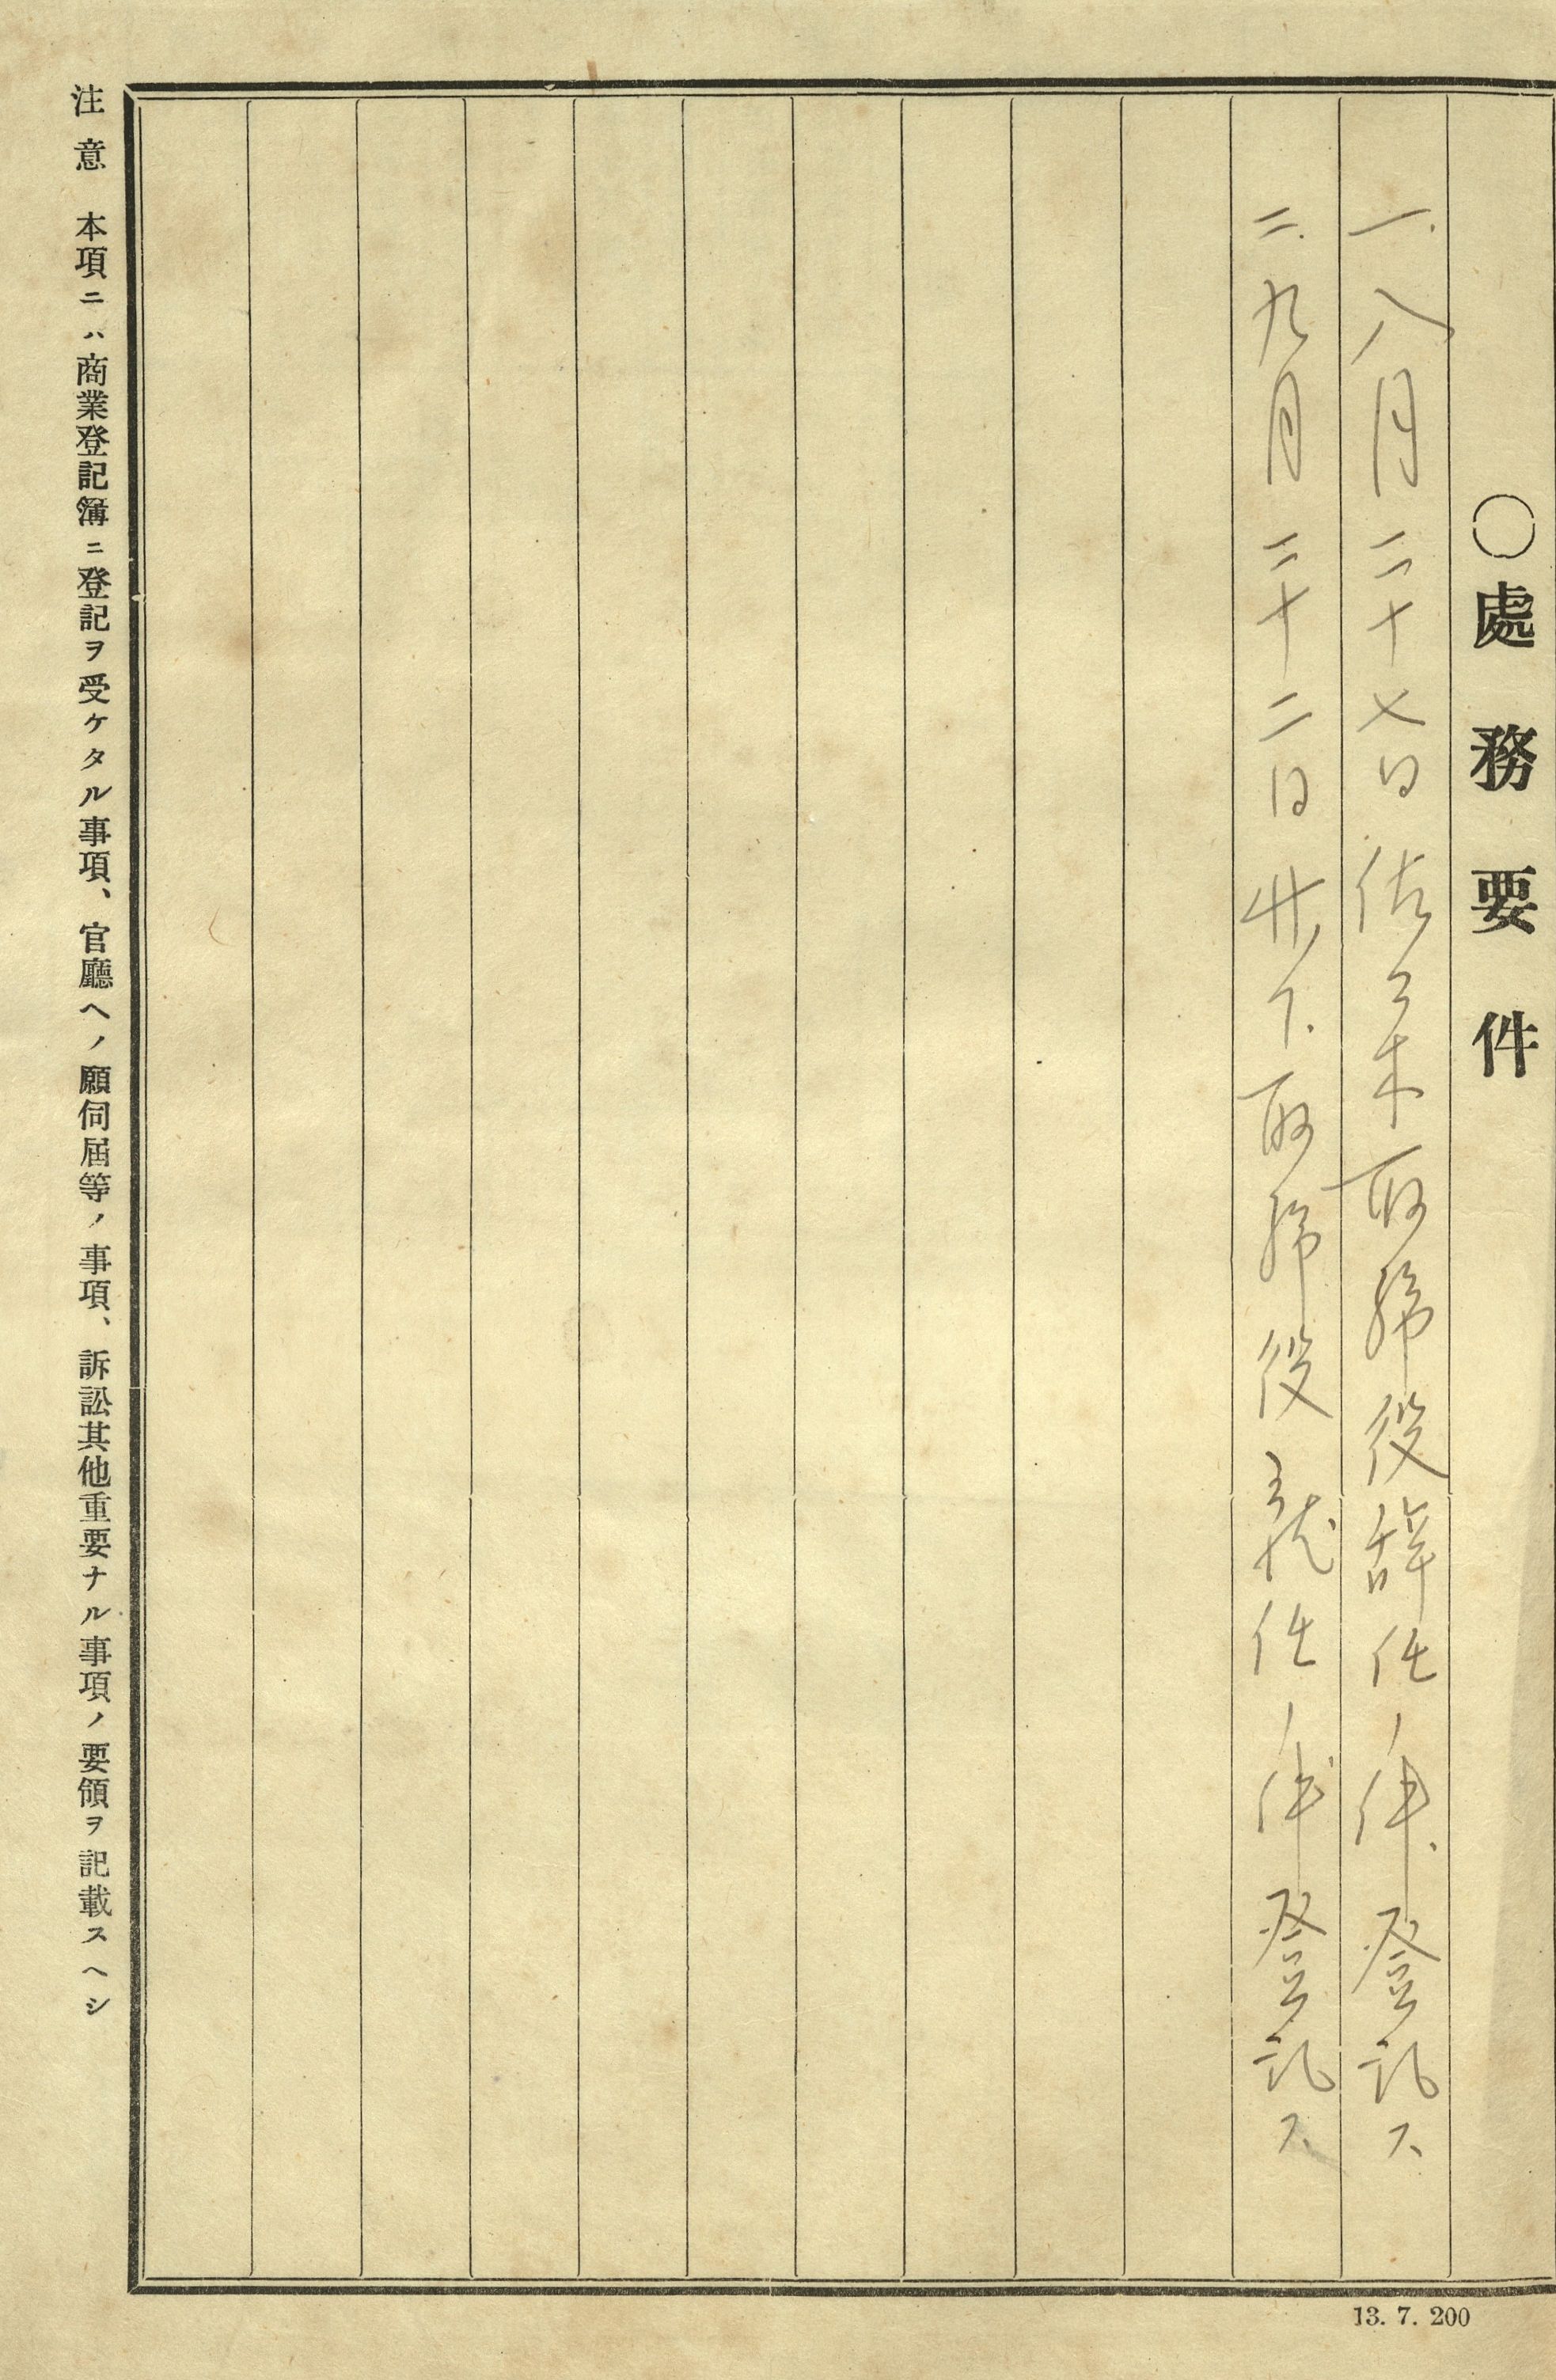 〇處務要件
一、八月二十七日佐々木取締役辞任ノ件、登記ス
二、九月二十二日下取締役就任ノ件登記ス
注意 本項ニハ商業登記簿ニ登記ヲ受ケタル事項、官廳ヘノ願伺屆等ノ事項、訴訟其他重要ナル事項ノ要領ヲ記載スヘシ
13. 7. 200